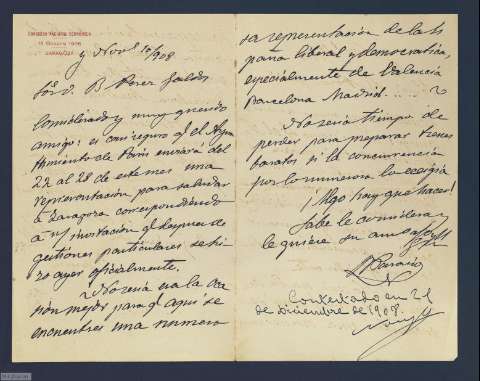 y Novbre 10/908
Sor D. B. Perez Galdós
Considerado y muy querido
amigo: es casi seguro q el Ayun
tamiento de Paris enviará del
22 al 28 de este mes una
representación para saludar
á Zaragoza correspondiendo
á n/ invitación q despues de
gestiones particulares se hi
zo ayer oficialmente.
¿No sería la oca
sión mejor para q aquí se
encuentre una numero
sa representación de la Es
paña liberal y democrática,
especialmente de Valencia
Barcelona Madrid ..... ?
No sería tiempo de
perder para preparar trenes
baratos si la concurrencia
por lo numerosa lo exigía
¡Algo hay que hacer!
Sabe le considera y
le quiere su amigo
Contestado en 21
de diciembre de 1908.